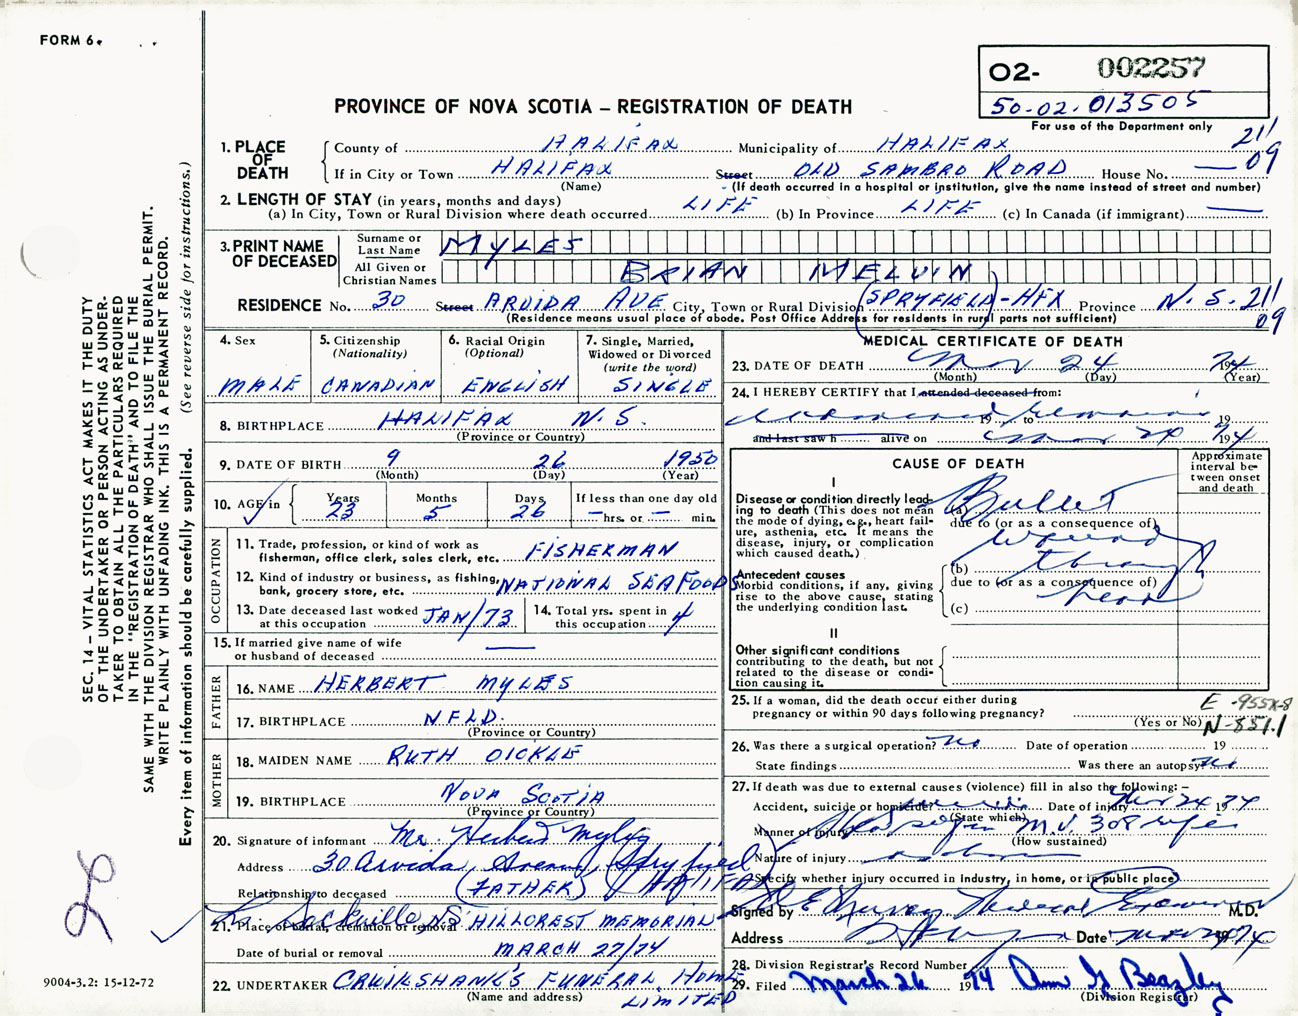 FORM 6.
O2- 002257
50-02-013505
For use of the Department only
PROVINCE OF NOVA SCOTIA – REGISTRATION OF DEATH
211
09
1. PLACE OF DEATH
County of HALIFAX Municipality of HALIFAX
If in City or Town HALIFAX Street OLD SAMBRO ROAD House No. —
(Name) (If death occurred in a hospital or institution, give the name instead of street and number)
2. LENGTH OF STAY (in years, months and days)
(a) In City, Town or Rural Division where death occurred LIFE (b) In Province LIFE (c) In Canada (if immigrant) —
3. PRINT NAME OF DECEASED
Surname or Last Name MYLES
All Given or Christian Names BRIAN MELVIN
RESIDENCE No. 30 Street ARVIDA AVE City, Town or Rural Division (SPRYFIELD)-HFX Province N.S. 211
09
(Residence means usual place of abode. Post Office Address for residents in rural parts not sufficient)
4. Sex MALE
5. Citizenship (Nationality) CANADIAN
6. Racial Origin (Optional) ENGLISH
7. Single, Married, Widowed or Divorced (write the word) SINGLE
8. BIRTHPLACE HALIFAX N.S.
(Province or Country)
9. DATE OF BIRTH 9 26 1950
(Month) (Day) (Year)
10. AGE in Years 23 Months 5 Days 26 If less than one day old — hrs. or — min.
OCCUPATION
11. Trade, profession, or kind of work as fisherman, office clerk, sales clerk, etc. FISHERMAN
12. Kind of industry or business, as fishing, bank, grocery store, etc. NATIONAL SEA FOODS
13. Date deceased last worked at this occupation JAN/73
14. Total yrs. spent in this occupation 4
15. If married give name of wife or husband of deceased —
FATHER
16. NAME HERBERT MYLES
17. BIRTHPLACE NFLD.
(Province or Country)
MOTHER
18. MAIDEN NAME RUTH DICKIE
19. BIRTHPLACE NOVA SCOTIA
(Province or Country)
20. Signature of informant Mr. Herbert Myles
Address 30 Arvida Avenue, Spryfield HALIFAX
Relationship to deceased (FATHER)
21. Place of burial, cremation or removal Sackville NS HILLCREST MEMORIAL
Date of burial or removal MARCH 27/74
22. UNDERTAKER CRUIKSHANK'S FUNERAL HOME LIMITED
(Name and address)
MEDICAL CERTIFICATE OF DEATH
23. DATE OF DEATH Mar 24 74
(Month) (Day) (Year)
24. I HEREBY CERTIFY that I attended deceased from:
19 to 19
and last saw h alive on Mar 24 1974
CAUSE OF DEATH
Approximate interval between onset and death
I
Disease or condition directly leading to death (This does not mean the mode of dying, e.g., heart failure, asthenia, etc. It means the disease, injury, or complication which caused death.)
(a) Bullet
due to (or as a consequence of)
wound
Antecedent causes
Morbid conditions, if any, giving rise to the above cause, stating the underlying condition last.
(b) through
due to (or as a consequence of)
(c)
II
Other significant conditions contributing to the death, but not related to the disease or condition causing it.
25. If a woman, did the death occur either during pregnancy or within 90 days following pregnancy?
(Yes or No)
E-955X-8
N-851.1
26. Was there a surgical operation? no Date of operation 19
State findings Was there an autopsy? no
27. If death was due to external causes (violence) fill in also the following: –
Accident, suicide or homicide Date of injury Mar 24 1974
(State which)
Manner of injury
(How sustained)
Nature of injury
Specify whether injury occurred in Industry, in home, or in public place
Signed by Medical Examiner M.D.
Address Date Mar 1974
28. Division Registrar's Record Number
29. Filed March 26 1974 Ann G Beazley
(Division Registrar)
SEC. 14 – VITAL STATISTICS ACT MAKES IT THE DUTY
OF THE UNDERTAKER OR PERSON ACTING AS UNDER-
TAKER TO OBTAIN ALL THE PARTICULARS REQUIRED
IN THE "REGISTRATION OF DEATH" AND TO FILE THE
SAME WITH THE DIVISION REGISTRAR WHO SHALL ISSUE THE BURIAL PERMIT.
WRITE PLAINLY WITH UNFADING INK. THIS IS A PERMANENT RECORD.
Every item of information should be carefully supplied. (See reverse side for instructions.)
9004-3.2: 15-12-72